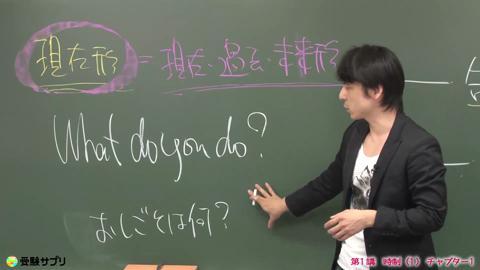 現在形 = 現在・過去・未来形
What do you do?
おしごとは何?
受験サプリ
第1講 時制(1) チャプター1